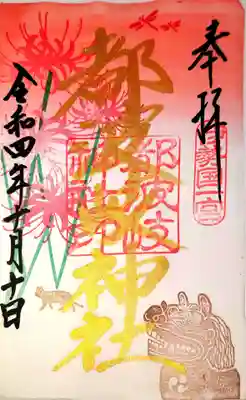 奉拝
伊勢国一宮
都波岐神社
都波岐
令和四年十月十日